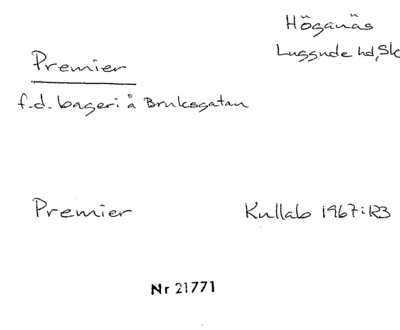 Höganäs
Luggude hd, Sk
Premier
f.d. bageri å Bruksgatan
Premier Kullab 1967:123
Nr 21771